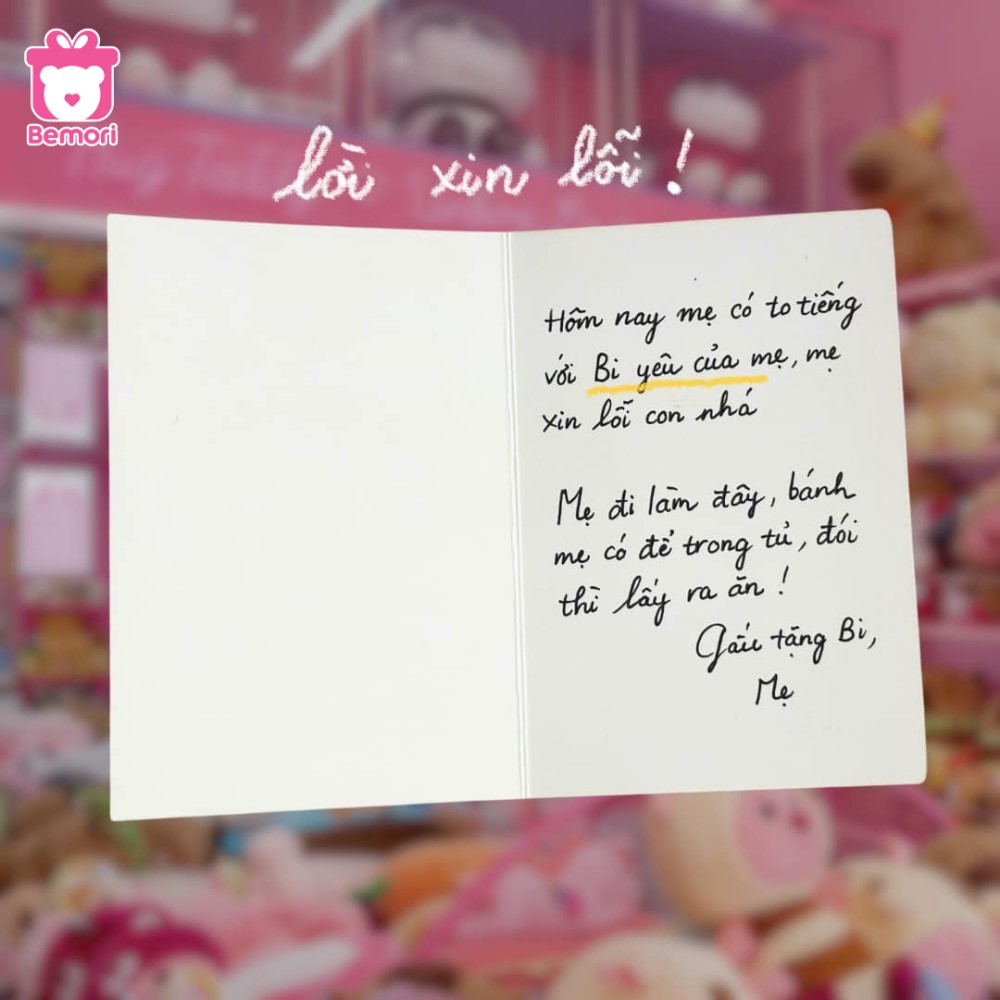 Bemori
lời xin lỗi !
Hôm nay mẹ có to tiếng
với Bi yêu của mẹ, mẹ
xin lỗi con nhá
Mẹ đi làm đây, bánh
mẹ có để trong tủ, đói
thì lấy ra ăn !
Gấu tặng Bi,
Mẹ